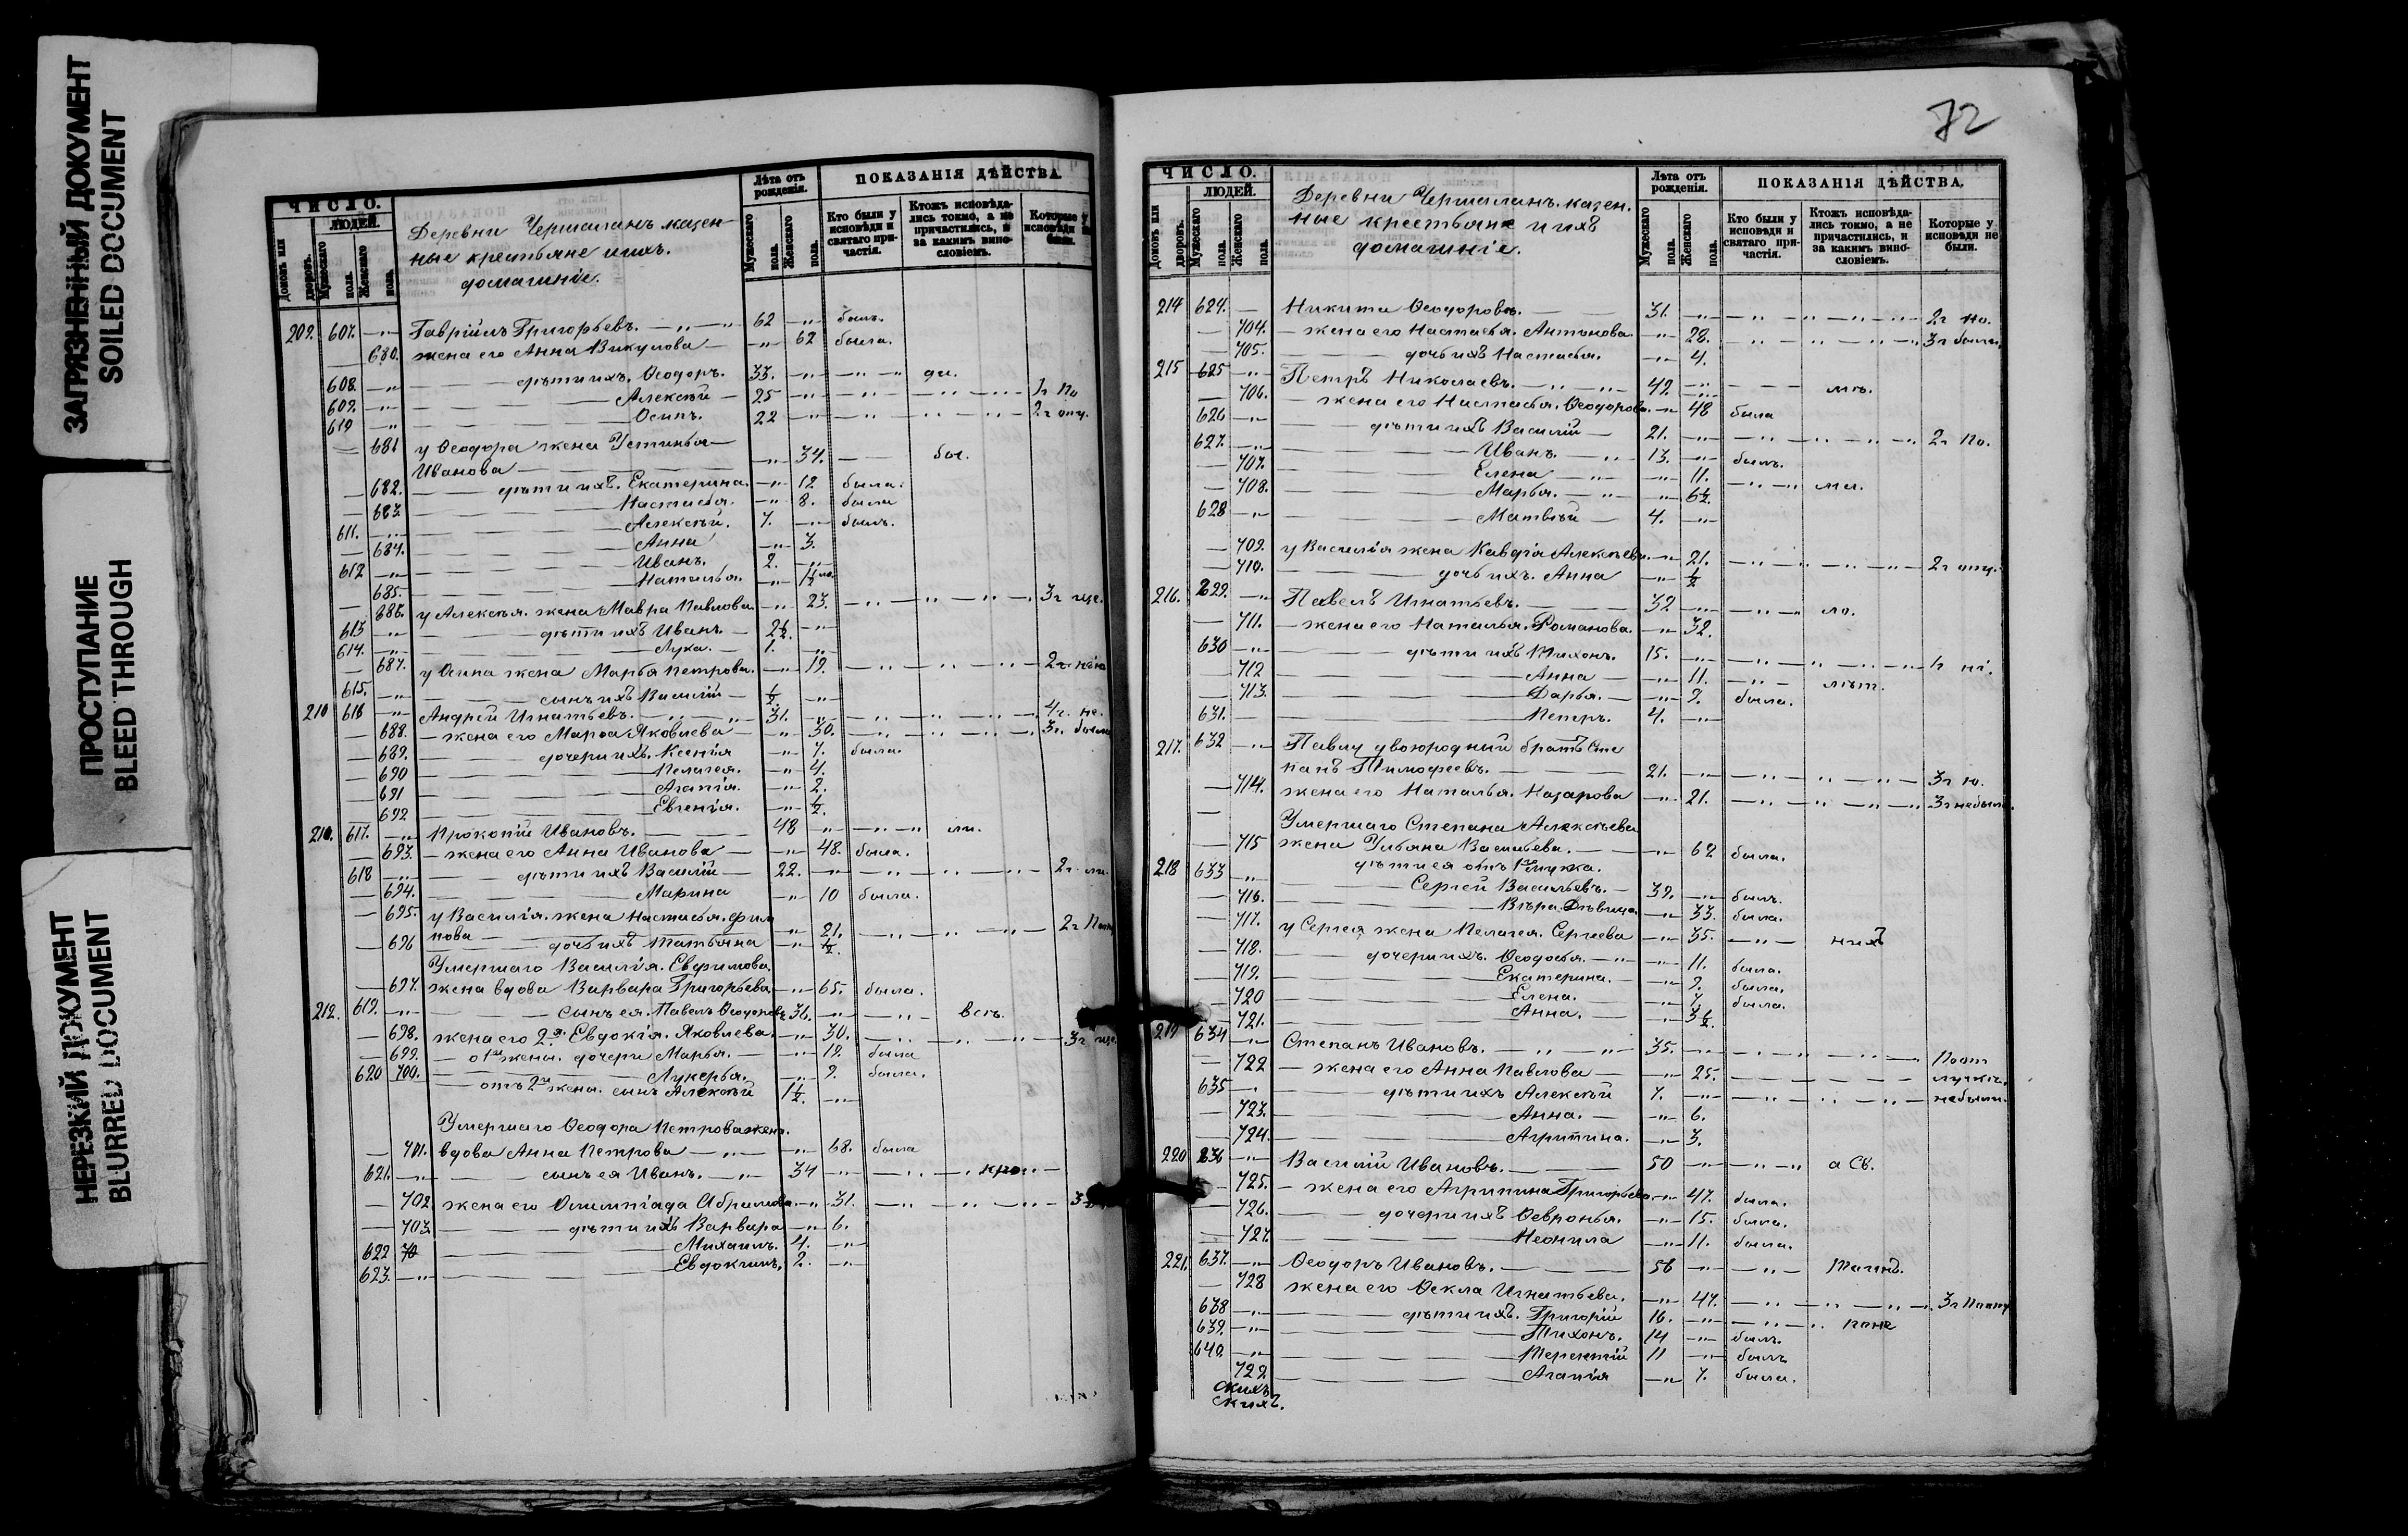 ЗАГРЯЗНЕННЫЙ ДОКУМЕНТ
SOILED DOCUMENT
ПРОСТУПАНИЕ
BLEED THROUGH
НЕРЕЗКИЙ ДОКУМЕНТ
BLURRED DOCUMENT
ЧИСЛО.
ЛЮДЕЙ.
Домовъ или дворовъ.
Мужескаго пола.
Женскаго пола.
Деревни казен
ные крестьяне и ихъ
домашніе.
Лѣта отъ рожденія.
Мужескаго пола.
Женскаго пола.
ПОКАЗАНІЯ ДѢЙСТВА.
Кто были у исповѣди и святаго причастія.
Ктожъ исповѣдались токмо, а не причастились, и за какимъ винословіемъ.
Которые у исповѣди не были.
209. 607. —„— Гавріилъ Григорьевъ. —„—„ 62 —„— былъ.
— 680. жена его Анна Викулова — —„— 62 была.
608. —„ дѣти ихъ. Ѳеодоръ. 33. —„—
609. —„— Алексѣй — 25 —„—
610 —„— Осипъ. 22 —„—
— 681 у Ѳеодора жена Устинья
Иванова — —„— 34.
— 682. дѣти ихъ. Екатерина. —„— 12 была.
— 683. Настасья. —„— 8. была
611. —„— Алексѣй. 7. —„— былъ.
— 684. Анна —„— 3.
612 —„— Иванъ. 2. —„—
— 685. Наталья. —„—
— 686. у Алексѣя. жена Мавра Павлова. —„— 23.
613 —„— дѣти ихъ Иванъ. — 2½. —„—
614. —„— Лука. — 1. —„—
— 687. у Осипа жена Марья Петрова. —„— 19.
615. —„— сынъ ихъ Василій — ½. —„—
210 616 —„— Андрей Игнатьевъ. 31. —„— 4 г. не.
— 688. — жена его Марѳа Яковлева — —„— 30. 3 г. были
— 689. дочери ихъ. Ксенія —„— 7. была.
— 690 Пелагея. —„— 4.
— 691 Агапія. —„— 2.
— 692 Евгенія. —„— ½.
210. 617. —„— Прокопій Ивановъ. 48 —„—
— 693. — жена его Анна Иванова — —„— 48. была.
618 —„— дѣти ихъ Василій — 22. —„—
— 694. Марина —„— 10 была.
— 695. у Василія. жена Настасья. Фили
пова — —„— 21.
— 696 дочь ихъ Татьяна —„— ½.
Умершаго Василія. Евфимова.
— 697. жена вдова Варвара Григорьева. —„— 65. была.
212. 619. —„— сынъ ея. Павелъ Ѳеодоровъ 36. —„—
— 698. жена его 2я. Евдокія. Яковлева. —„— 30.
— 699. — о 1й жены. дочери Марья. — —„— 12. была
620 700. Лукерья. —„— 9. была.
отъ 2й жены. сынъ Алексѣй 1½. —„—
Умершаго Ѳеодора Петрова жена.
— 701. вдова Анна Петрова —„— —„— 68. была
621. —„— сынъ ея Иванъ. —„— 34 —„—
— 702 жена его Олимпіада Абрамова. —„— 31.
— 703. дѣти ихъ Варвара —„— 6.
622 70 Михаилъ. 4. —„—
623. —„— Евдокимъ. 2. —„—
72
ЧИСЛО.
ЛЮДЕЙ.
Домовъ или дворовъ.
Мужескаго пола.
Женскаго пола.
Деревни казен.
ные крестьяне и ихъ
домашніе.
Лѣта отъ рожденія.
Мужескаго пола.
Женскаго пола.
ПОКАЗАНІЯ ДѢЙСТВА.
Кто были у исповѣди и святаго причастія.
Ктожъ исповѣдались токмо, а не причастились, и за какимъ винословіемъ.
Которые у исповѣди не были.
214 624. — Никита Ѳеодоровъ. 31. —„— 2 г. по.
— 704. — жена его Настасья. Антонова. —„— 28. 3 г были.
— 705. дочь ихъ Настасья. —„— 4.
215 625 —„— Петръ Николаевъ. —„—„— 42. —„—
— 706. — жена его Настасья. Ѳеодорова. —„— 48 была
626 —„— дѣти ихъ Василій — 21. —„— 2 г. по.
627. —„— Иванъ. —„ 13. —„— былъ.
— 707. Елена —„— —„— 11.
— 708. Марья. —„ —„— 6½.
628 —„— Матвѣй — 4. —„—
— 709. у Василія жена Алексѣева. —„— 21.
— 710. дочь ихъ. Анна —„— ½
216. 629. —„— Павелъ Игнатьевъ. 32 —„—
— 711. — жена его Наталья. Романова. —„— 32.
630 —„— дѣти ихъ Тихонъ. 15. —„—
— 712 Анна — —„— 11.
— 713. Дарья. — —„— 9. была.
631. — Петръ. 4. —„—
217. 632 —„— Павлу двоюродний братъ Сте
панъ Тимофеевъ. 21. —„—
— 714. жена его Наталья. Назарова —„— 21. 3 г небыли.
Умершаго Степана Алексѣева
— 715 жена Ульяна Васильева. —„— 62 была.
218 633 —„— дѣти ея отъ 1го мужа.
Сергей Васильевъ. — 39. —„— былъ.
— 716. Вѣра. Дѣвица. —„— 33. была.
— 717. у Сергея жена Пелагея. Сергеева —„— 35.
— 718. дочери ихъ. Ѳеодосья. —„— —„— 11. была.
— 719. Екатерина. — —„— 9. была.
— 720 Елена. —„— 7. была.
— 721. Анна. — —„— 3½.
219 634 —„— Степанъ Ивановъ. 35. —„—
— 722 — жена его Анна Павлова — —„— 25.
635 —„ дѣти ихъ Алексѣй 7. —„— небыли.
— 723. Анна. — —„— 6.
— 724. Агрипина. —„— 3.
220 636 —„— Василій Ивановъ. 50 —„—
— 725. — жена его Агрипина Григорьева —„— 47. была.
— 726. дочери ихъ Ѳевронья. —„— 15. была.
— 727. Неонила —„— 11. была.
221. 637. —„— Ѳеодоръ Ивановъ. 56 —„—
— 728 жена его Ѳекла Игнатьева. —„— 47.
638 —„— дѣти ихъ. Григорій 16. —„—
639. —„— Тихонъ. 14 —„— былъ.
640. —„— Терентій 11 —„— былъ
729. Агапія —„— 7. была.
скихъ
скихъ.